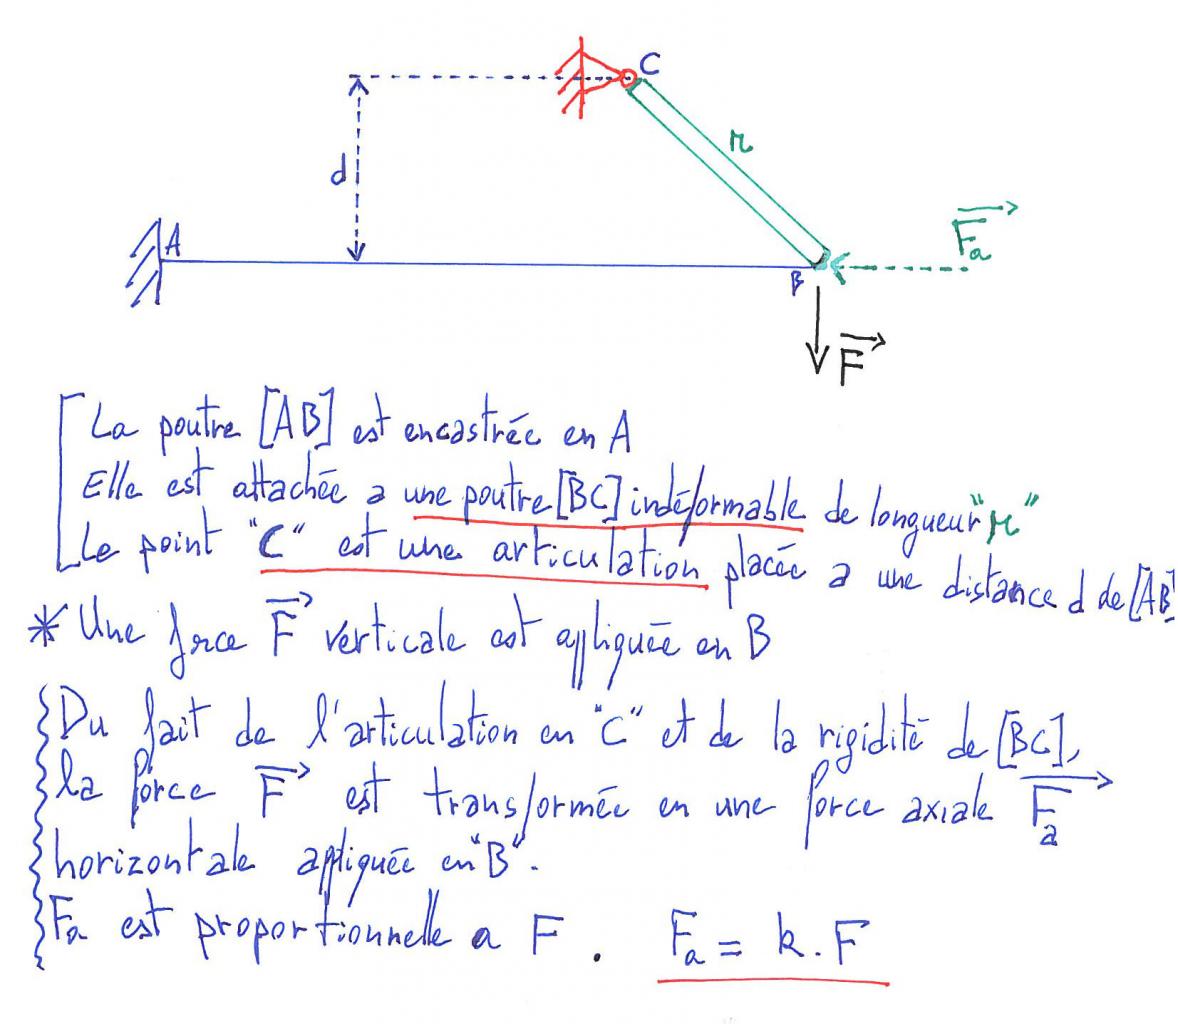 C
r
d
A
F_a
B
F
La poutre [AB] est encastrée en A
Elle est attachée a une poutre [BC] indéformable de longueur "r"
Le point "C" est une articulation placée a une distance d de [AB]
* Une force F verticale est appliquée en B
Du fait de l'articulation en "C" et de la rigidité de [BC],
la force F est transformée en une force axiale F_a
horizontale appliquée en "B".
F_a est proportionnelle a F. F_a = k.F